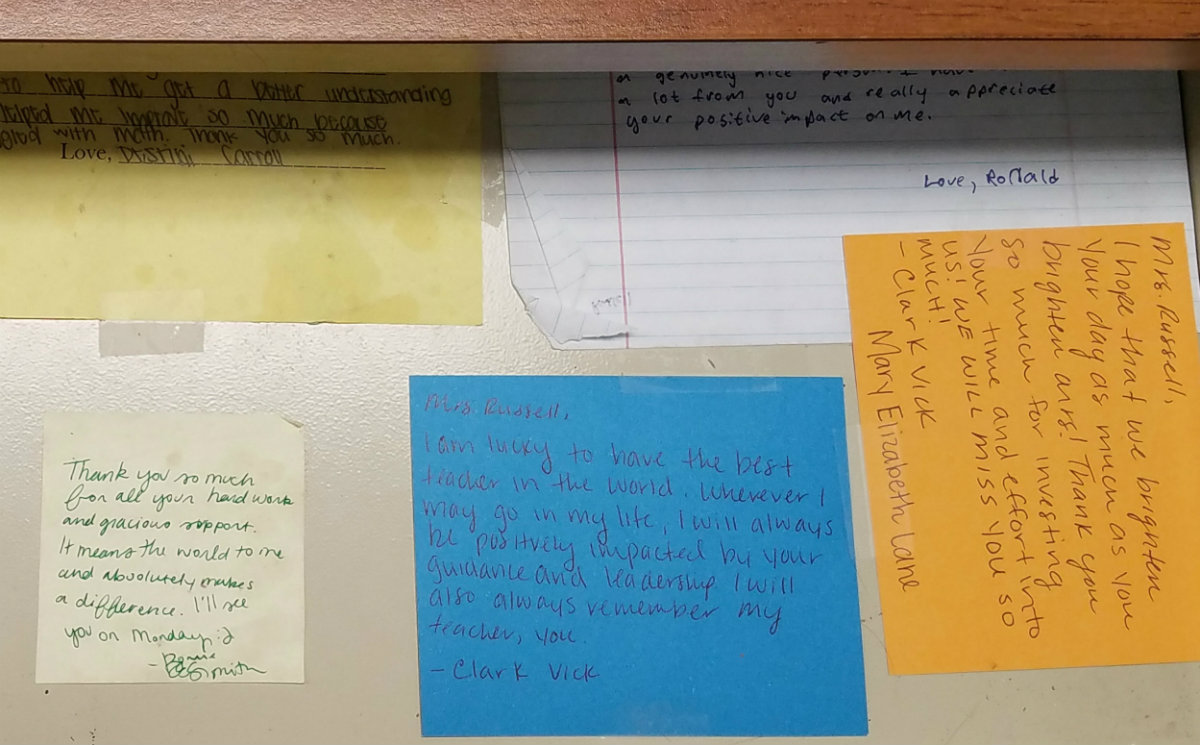 to help me get a better understanding
helped me improve so much because
with math. Thank you so much.
Love, Carroll
a genuinely nice person I have
a lot from you and really appreciate
your positive impact on me.
Love, Ronald
Mrs. Russell,
I hope that we brighten
your day as much as you
brighten ours! Thank you
so much for investing
your time and effort into
us! WE WILL miss you so
much!
- Clark Vick
Mary Elizabeth Lane
Thank you so much
for all your hard work
and gracious support.
It means the world to me
and absolutely makes
a difference. I'll see
you on Monday :)
- Smith
Mrs. Russell,
I am lucky to have the best
teacher in the world. Wherever I
may go in my life, I will always
be positively impacted by your
guidance and leadership I will
also always remember my
teacher, you.
- Clark Vick